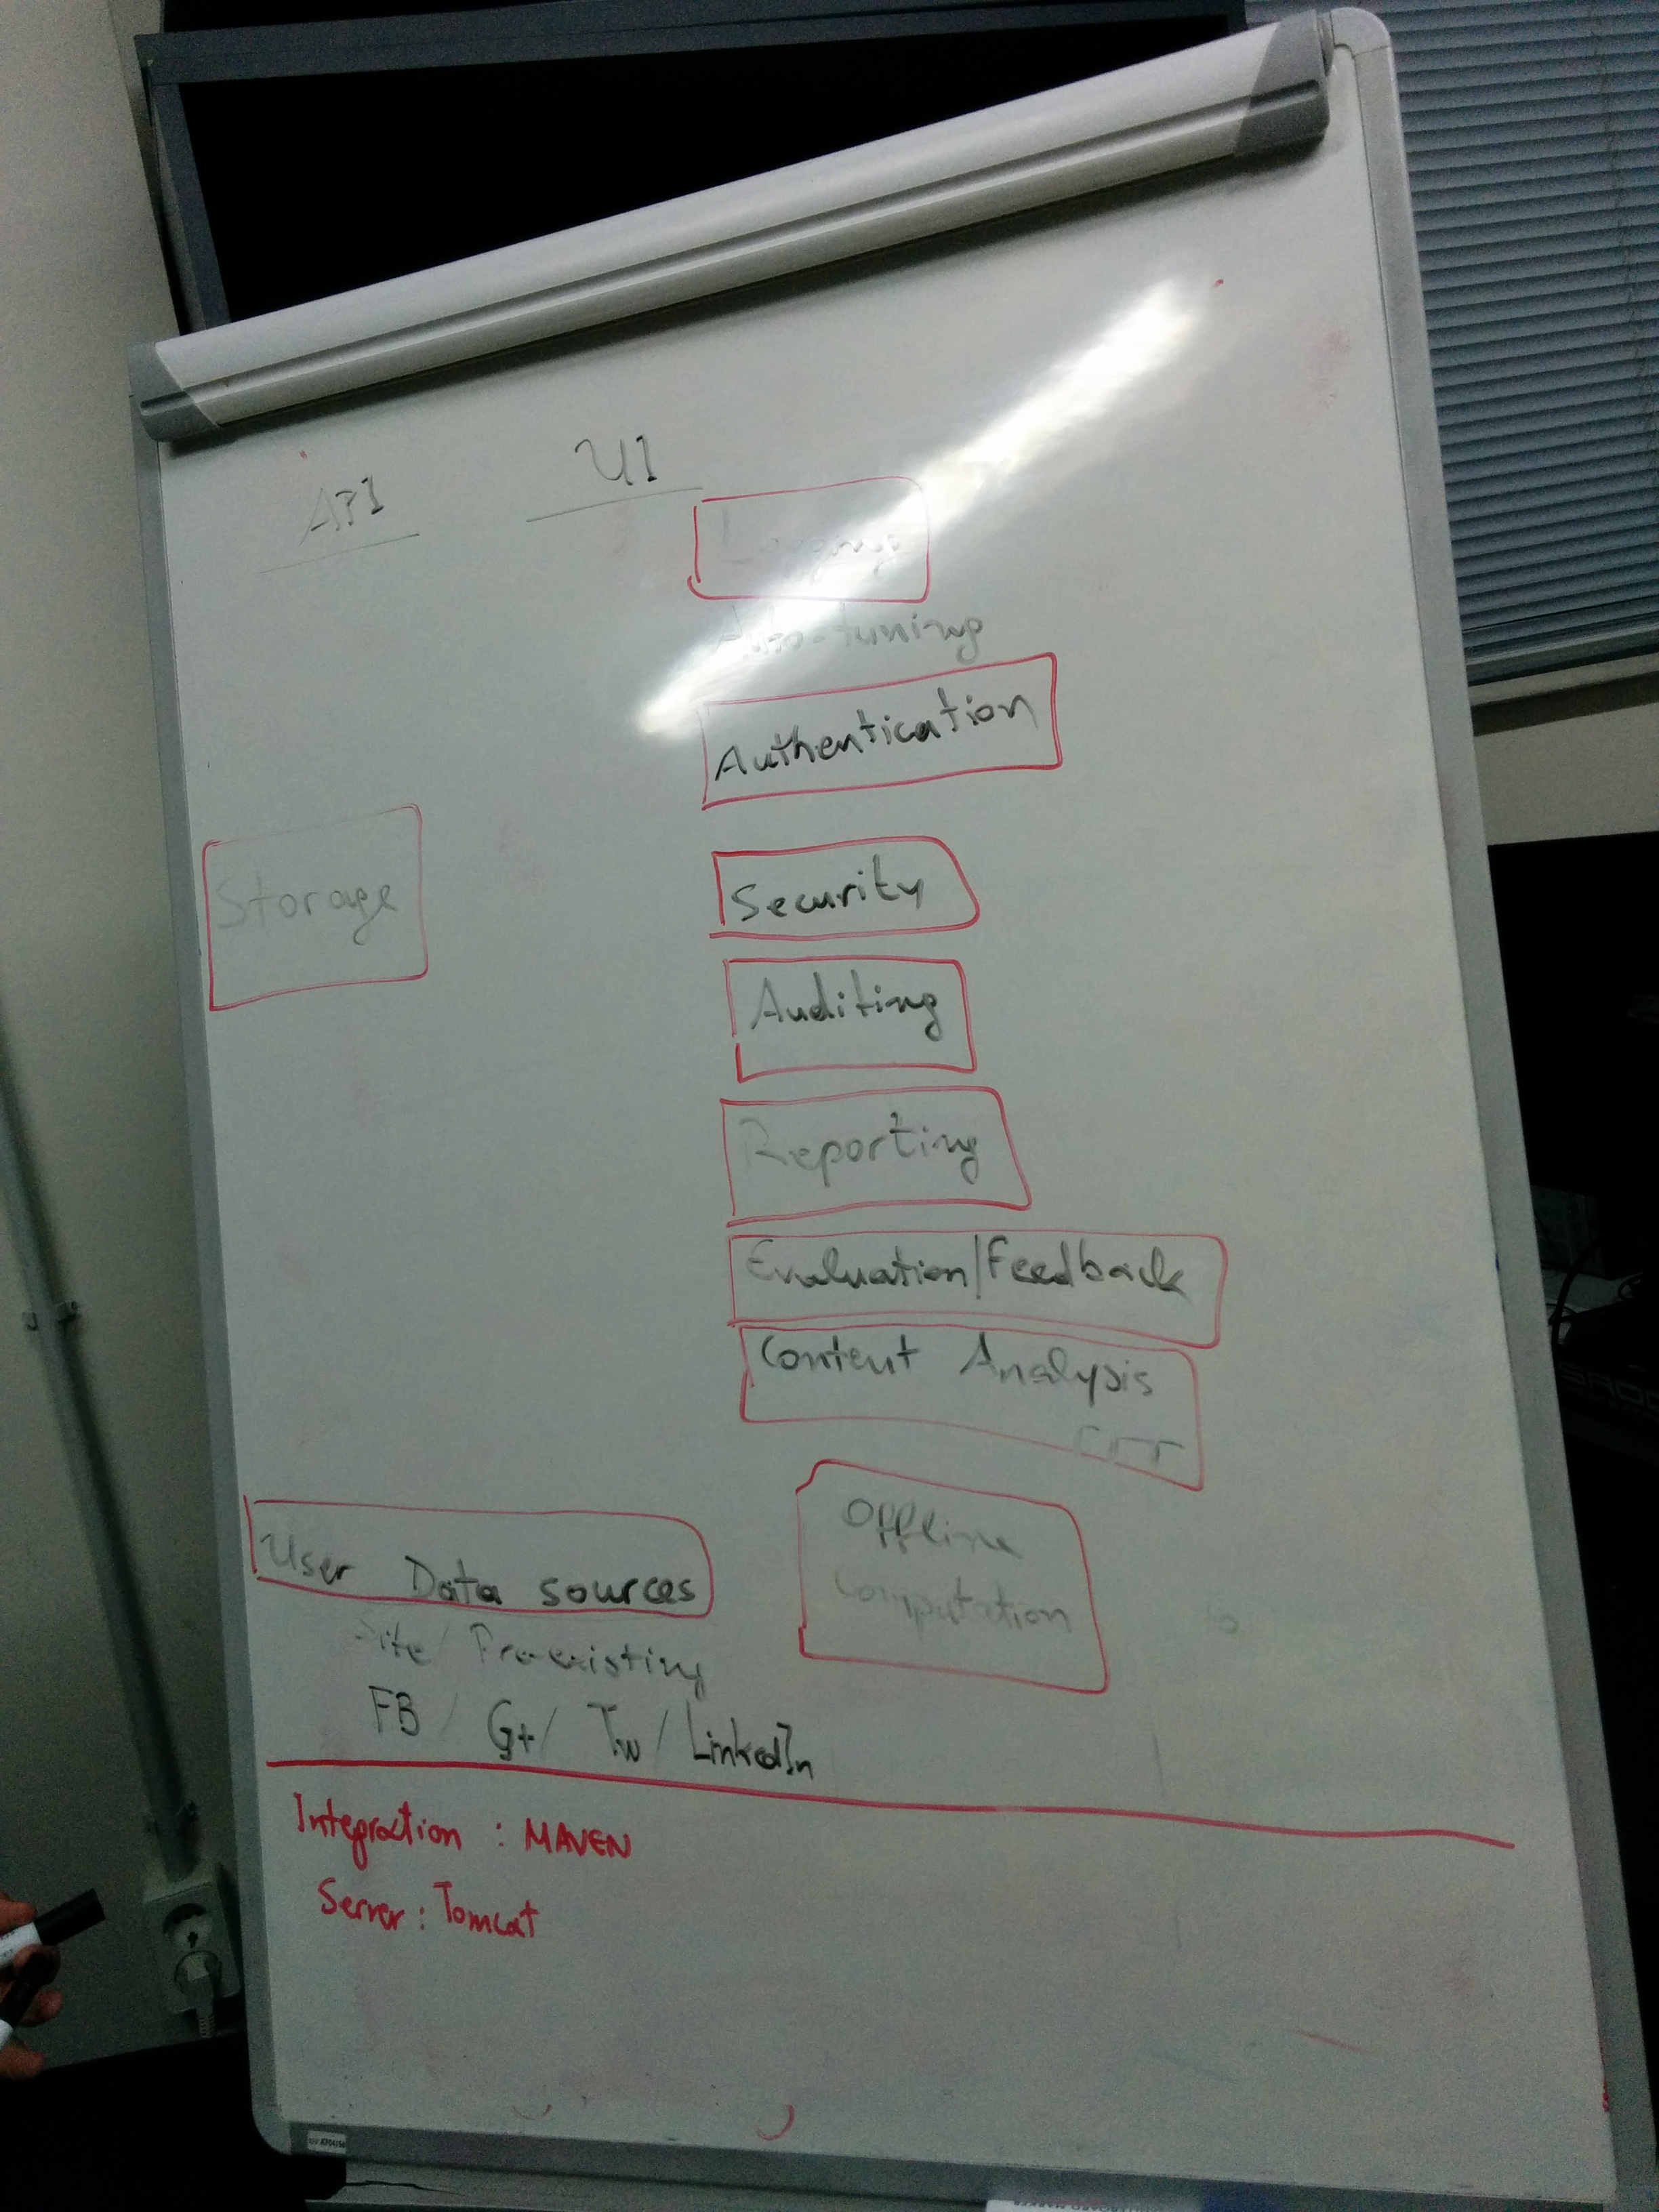 API
UI
Logging
Auto-tuning
Authentication
Storage
Security
Auditing
Reporting
Evaluation/Feedback
Content Analysis
User Data sources
Offline
Computation
Site/ Pre-existing
FB / G+/ Tw / LinkedIn
Integration : MAVEN
Server : Tomcat